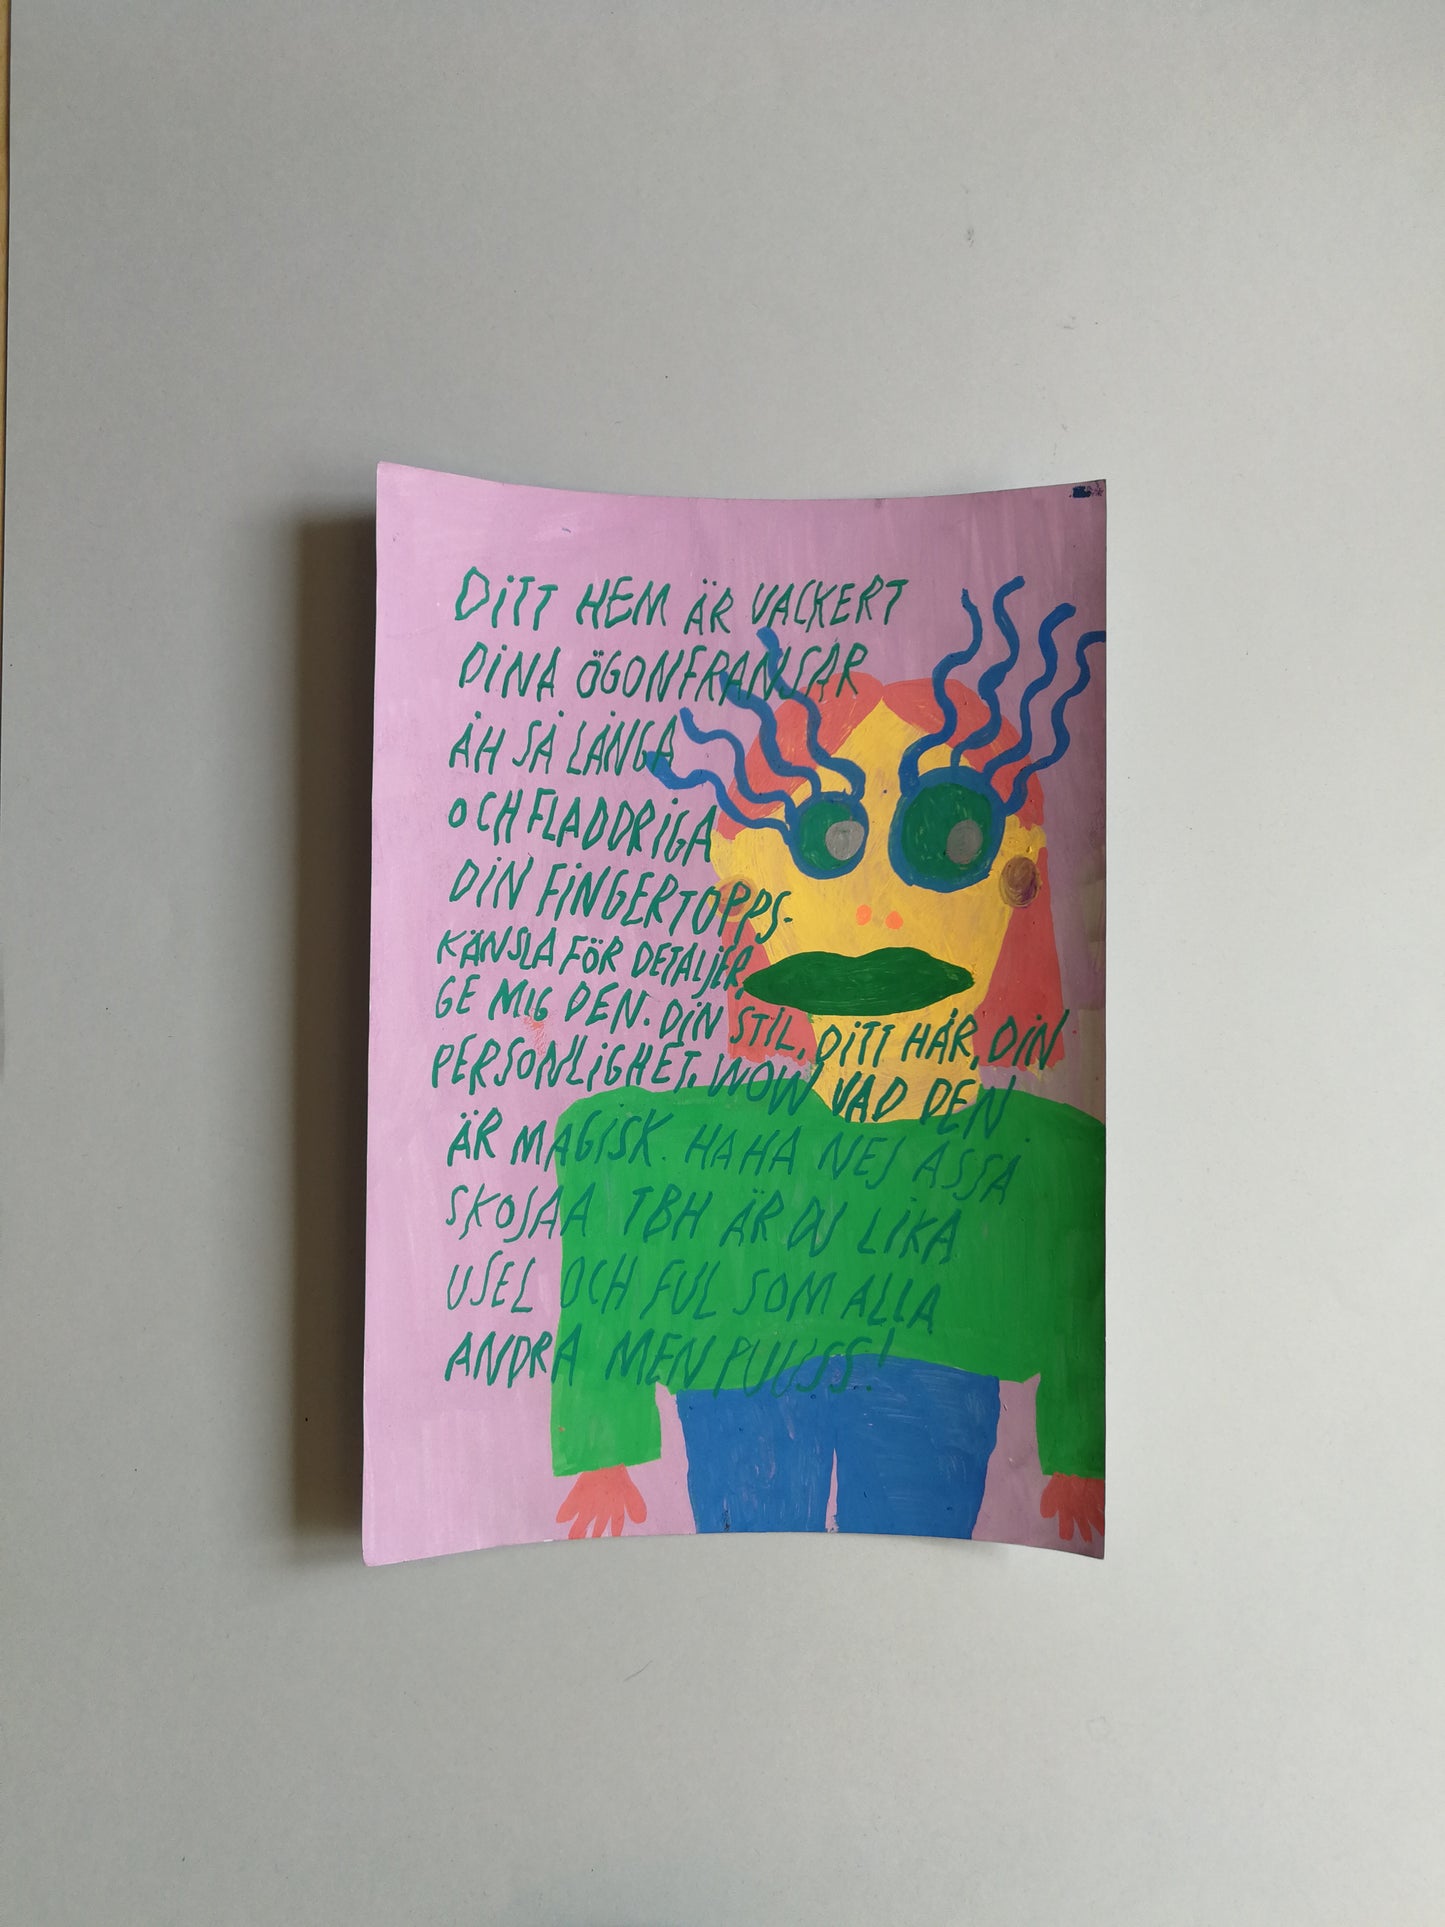 DITT HEM ÄR VACKERT
DINA ÖGONFRANSAR
ÅH SÅ LÅNGA
OCH FLADDRIGA
DIN FINGERTOPPS-
KÄNSLA FÖR DETALJER,
GE MIG DEN. DIN STIL, DITT HÅR, DIN
PERSONLIGHET. WOW VAD DEN
ÄR MAGISK. HAHA NEJ ASSÅ
SKOJAA TBH ÄR DU LIKA
USEL OCH FUL SOM ALLA
ANDRA MEN PUUSS!